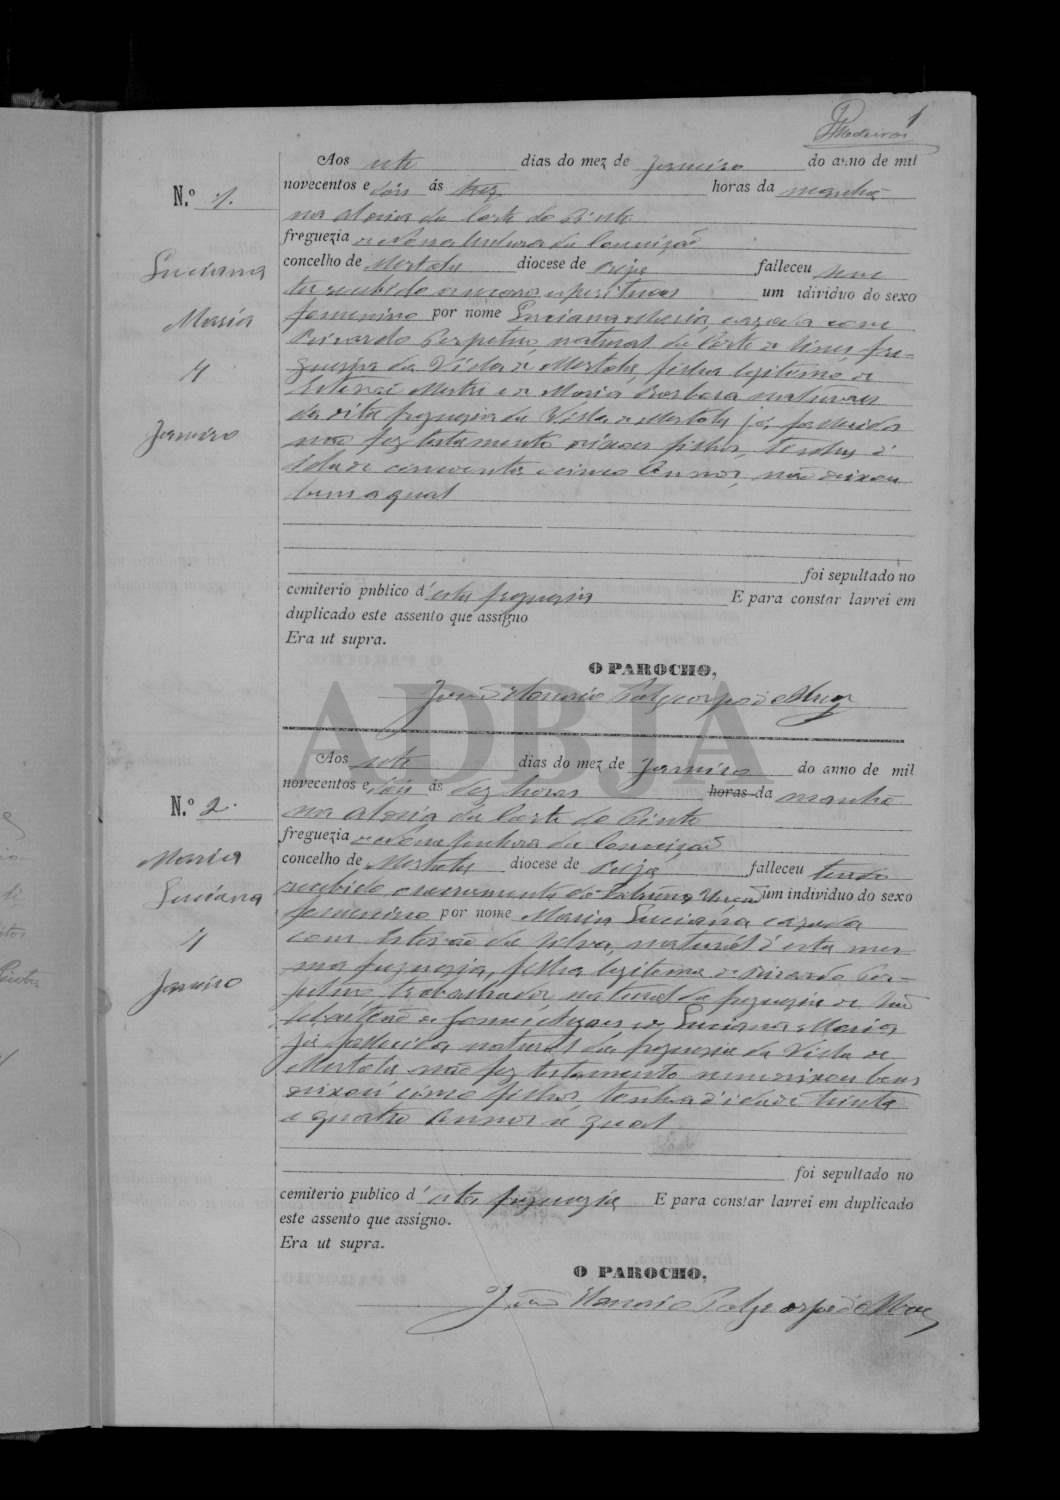 Medeiros 1
Aos sete dias do mez de Janeiro do anno de mil
N.º 1. novecentos e dois ás trez horas da manhã
na aldeia da Corte do Pinto
freguezia de Senhora da Conceição
Luciana concelho de Mertola diocese de Beja falleceu sem
ter recebido espirituaes um idividuo do sexo
Maria femenino por nome Luciana Maria, cazada com
Ricardo Perpetuo, natural da Corte fre-
4 guezia da Villa de Mertola, filha legitima de
Estevão e de Maria Barbara naturaes
da dita freguezia da Villa de Mertola já fallecidos
Janeiro não fez testamento deixou filhos, tendo de
idade cincoenta e cinco annos, não deixou
bens a qual
foi sepultado no
cemiterio pnblico d'esta freguezia E para constar lavrei em
duplicado este assento que assigno
Era ut supra.
O PAROCHO,
João
ADBJA
Aos sete dias do mez de Janeiro do anno de mil
novecentos e dois ás dez horas horas da manhã
N.º 2. na aldeia da Corte do Pinto
freguezia de Senhora da Conceição
Maria concelho de Mertola diocese de Beja falleceu tendo
Luciana recebido o sacramento da Extrema Unção um individuo do sexo
femenino por nome Maria Luciana cazada
4 com Estevão da Silva, natural d'esta mes-
ma freguezia, filha legitima de Ricardo Per-
Janeiro petuo, trabalhador, natural da freguezia de São
Sebastião e de Luciana Maria
já fallecida natural da freguezia da Villa de
Mertola não fez testamento nem deixou bens
deixou cinco filhos, tinha d'idade trinta
e quatro annos a qual
foi sepultado no
cemiterio publico d'esta freguezia E para constar lavrei em duplicado
este assento que assigno.
Era ut supra.
O PAROCHO,
João